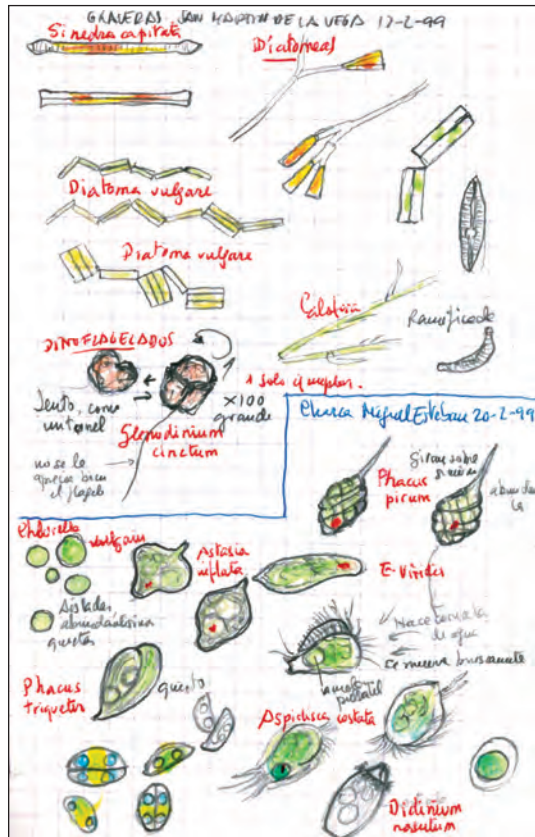 GRAVERAS SAN MARTIN DE LA VEGA 17-2-99
Sinedra capitata
Diatomeas
Diatoma vulgare
Diatoma vulgare
Ramificada
DINOFLAGELADOS
1 solo ejemplar.
lento, como
un tonel
x100
grande
Glenodinium
cinctum
no se le
aprecia bien
el flagelo
Charca Miguel Esteban 20-2-99
Giran sobre
si mismo
Phacus
pirum
Chlorella
vulgaris
Astasia
inflata
E. Viridis
Aisladas
abundantísima
quietas
Hace corriente
de agua
se mueve bruscamente
Phacus
triqueter
quieto
Aspidisca costata
Didinium
nasutum